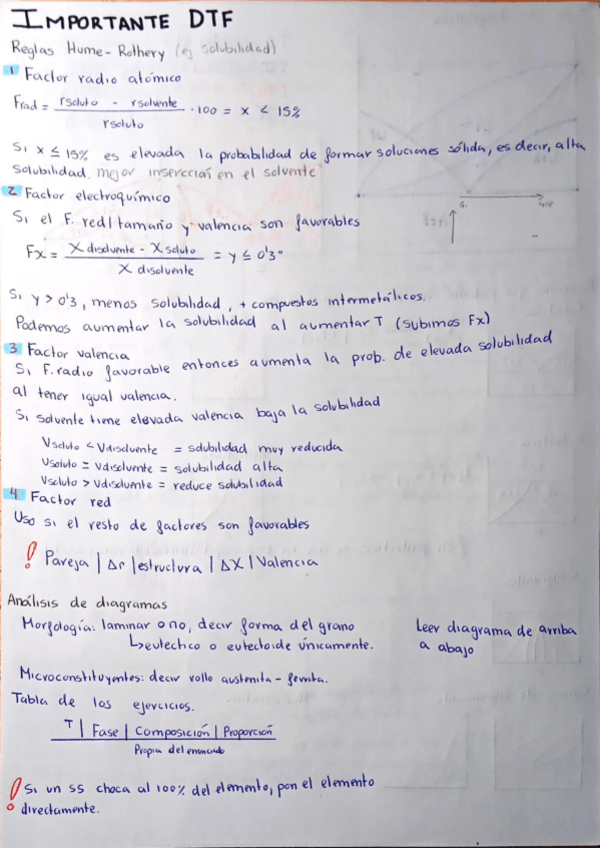 IMPORTANTE DTF
Reglas Hume-Rothery (ej solubilidad)
1 Factor radio atómico
Frad = rsoluto - rsolvente / rsoluto · 100 = x < 15%
Si x ≤ 15% es elevada la probabilidad de formar soluciones sólida, es decir, alta
solubilidad. mejor inserección en el solvente
2 Factor electroquímico
Si el F. red/tamaño y valencia son favorables
Fx = X disolvente - X soluto / X disolvente = y ≤ 0'3
Si y > 0'3, menos solubilidad, + compuestos intermetálicos.
Podemos aumentar la solubilidad al aumentar T (subimos Fx)
3 Factor valencia
Si F.radio favorable entonces aumenta la prob. de elevada solubilidad
al tener igual valencia.
Si solvente tiene elevada valencia baja la solubilidad
Vsoluto < Vdisolvente = solubilidad muy reducida
Vsoluto = Vdisolvente = solubilidad alta
Vsoluto > Vdisolvente = reduce solubilidad
4 Factor red
Uso si el resto de factores son favorables
! Pareja | Δr | estructura | ΔX | Valencia
Análisis de diagramas
Morfología: laminar o no, decir forma del grano
↳ eutectico o eutectoide únicamente.
Leer diagrama de arriba
a abajo
Microconstituyentes: decir rollo austenita - ferrita.
Tabla de los ejercicios.
T | Fase | Composición | Proporción
Propia del enunciado
! Si un ss choca al 100% del elemento, pon el elemento
directamente.